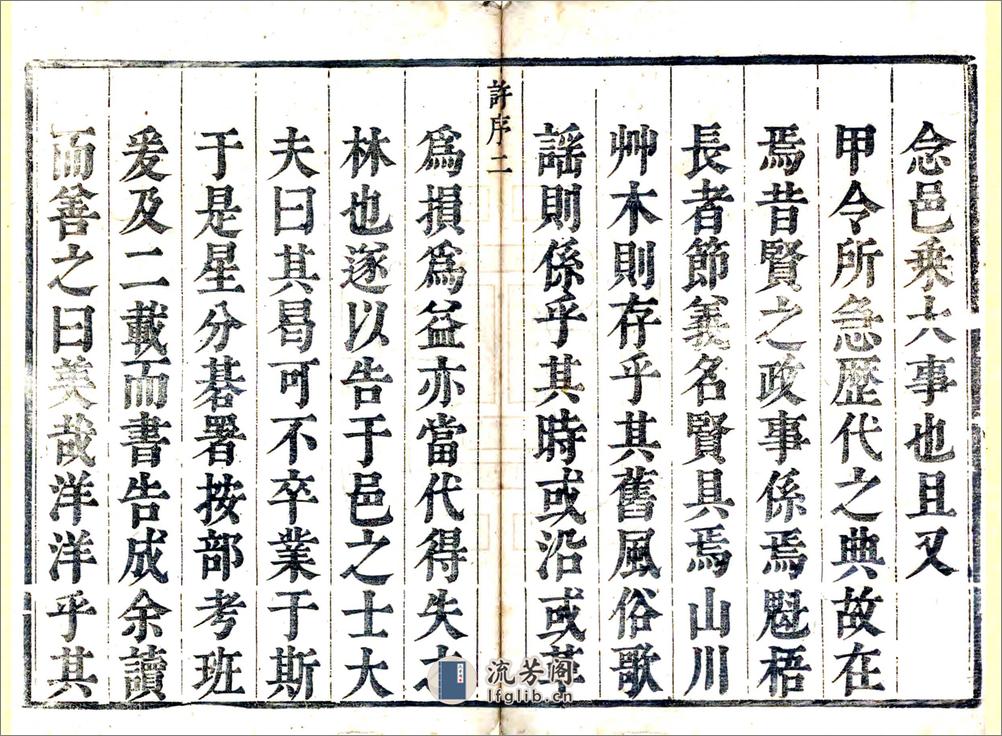 念邑乗大事也且又
甲令所急歴代之典故在
焉昔賢之政事係焉魁梧
長者節義名賢具焉山川
艸木則存乎其舊風俗歌
謡則係乎其時或沿或革
許序二
為損為益亦當代得失
林也遂以告于邑之士大
夫曰其曷可不卒業于斯
于是星分碁署按部考班
爰及二載而書告成余讀
而善之曰美哉洋洋乎其
流芳阁
lfglib.cn